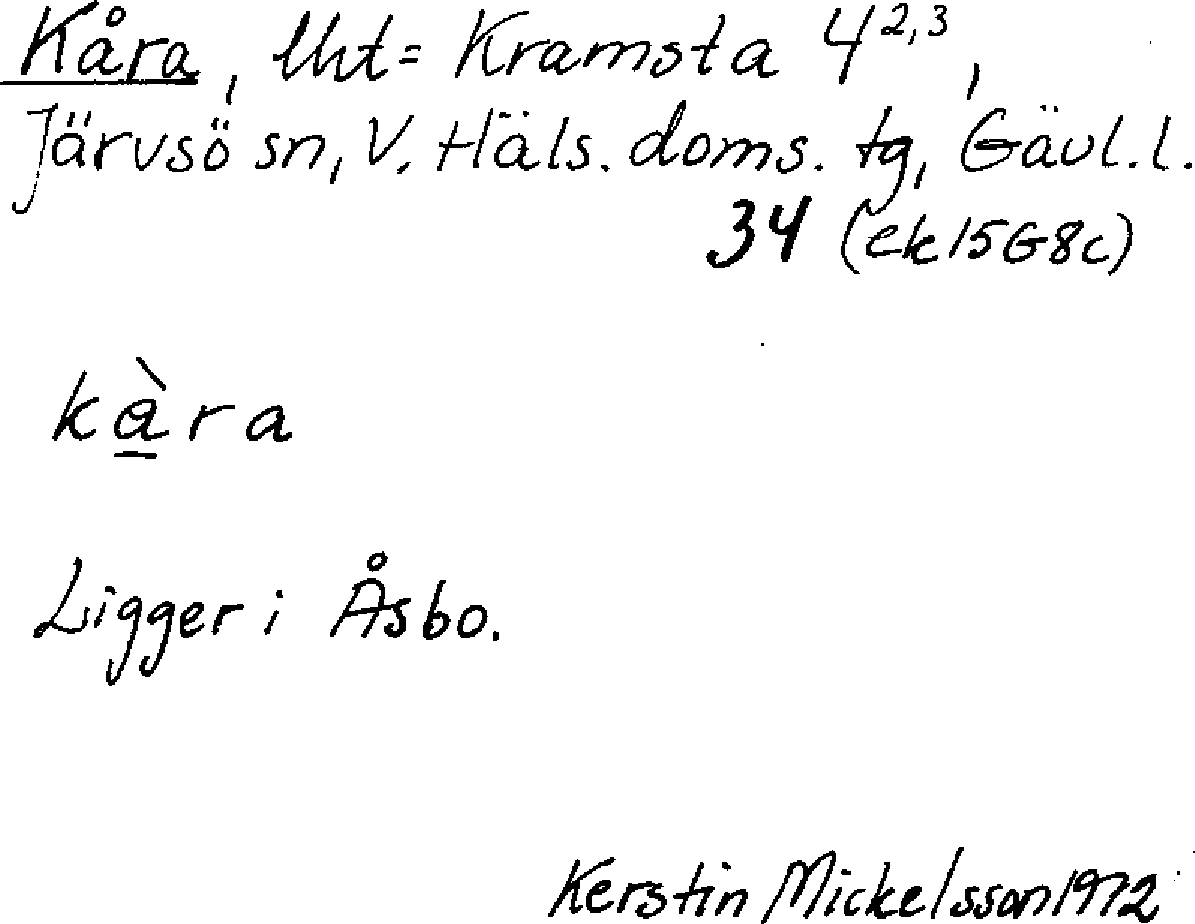 Kåra, lht= Kramsta 4²,³,
Järvsö sn, V. Häls. doms. tg, Gävl. l.
34 (ek 15G8c)
kàra
Ligger i Åsbo.
Kerstin Mickelsson 1972